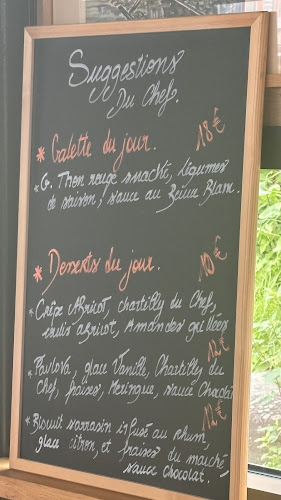 Suggestions
Du Chef.
* Galette du jour. 18€
* G. Thon rouge snacké, légumes
de saison, sauce au Beurre Blanc.
* Desserts du jour. 10€
* Crêpe Abricot, chantilly du Chef,
coulis abricot, Amandes grillées
12€
* Pavlova, glace Vanille, Chantilly du
Chef, fraises, Meringue, sauce Chocolat
12€
* Biscuit sarrasin infusé au rhum,
glace citron, et fraises du marché,
sauce chocolat.